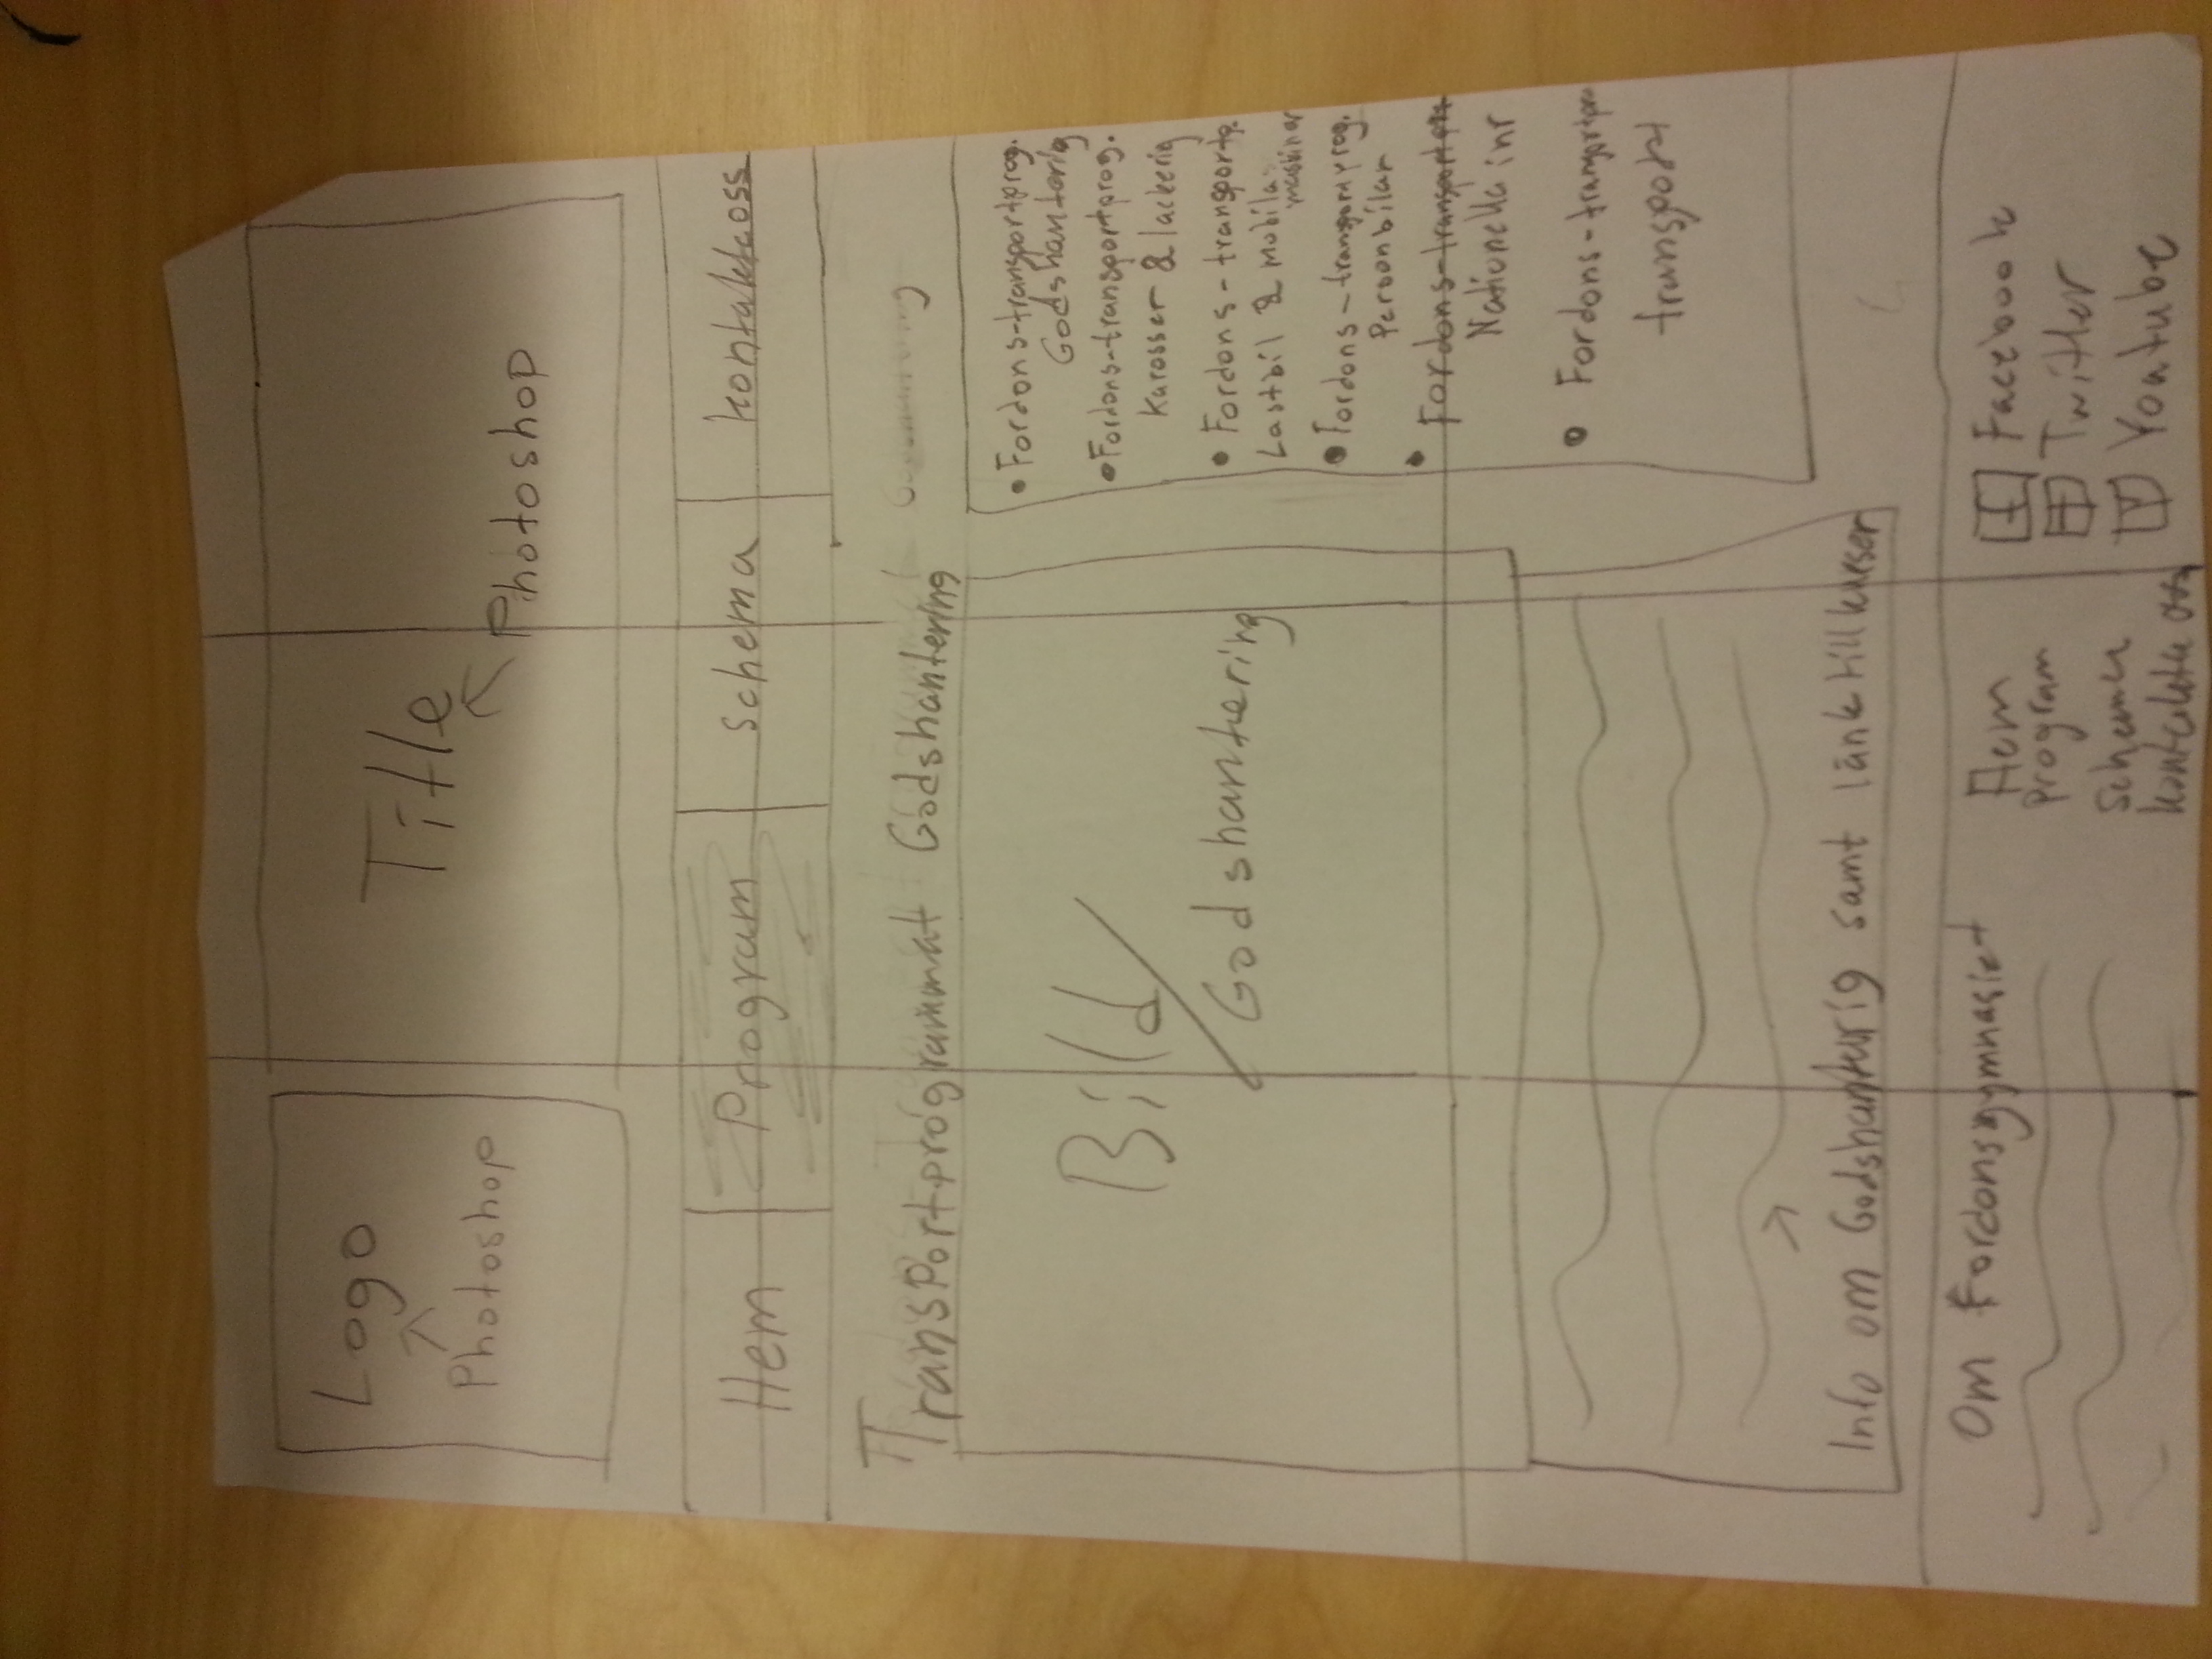 Logo
Photoshop
Title
Photoshop
Hem
Program
Schema
kontaktaoss
Transportprogrammat Godshantering
Godshantering
Bild
Godshantering
• Fordons-transportprog.
Godshanterig
• Fordons-transportprog.
Karosser & lackerig
• Fordons-transportp.
Lastbil & mobila
maskiner
• Fordons-transportprog.
Personbilar
• Fordons-transportpro
Nationella inr
• Fordons-transportpro
transport
Info om Godshanterig samt länk till kurser
Om Fordonsgymnasiet
Hem
Program
Schema
kontakta oss
f Facebook
T Twitter
Y Youtube